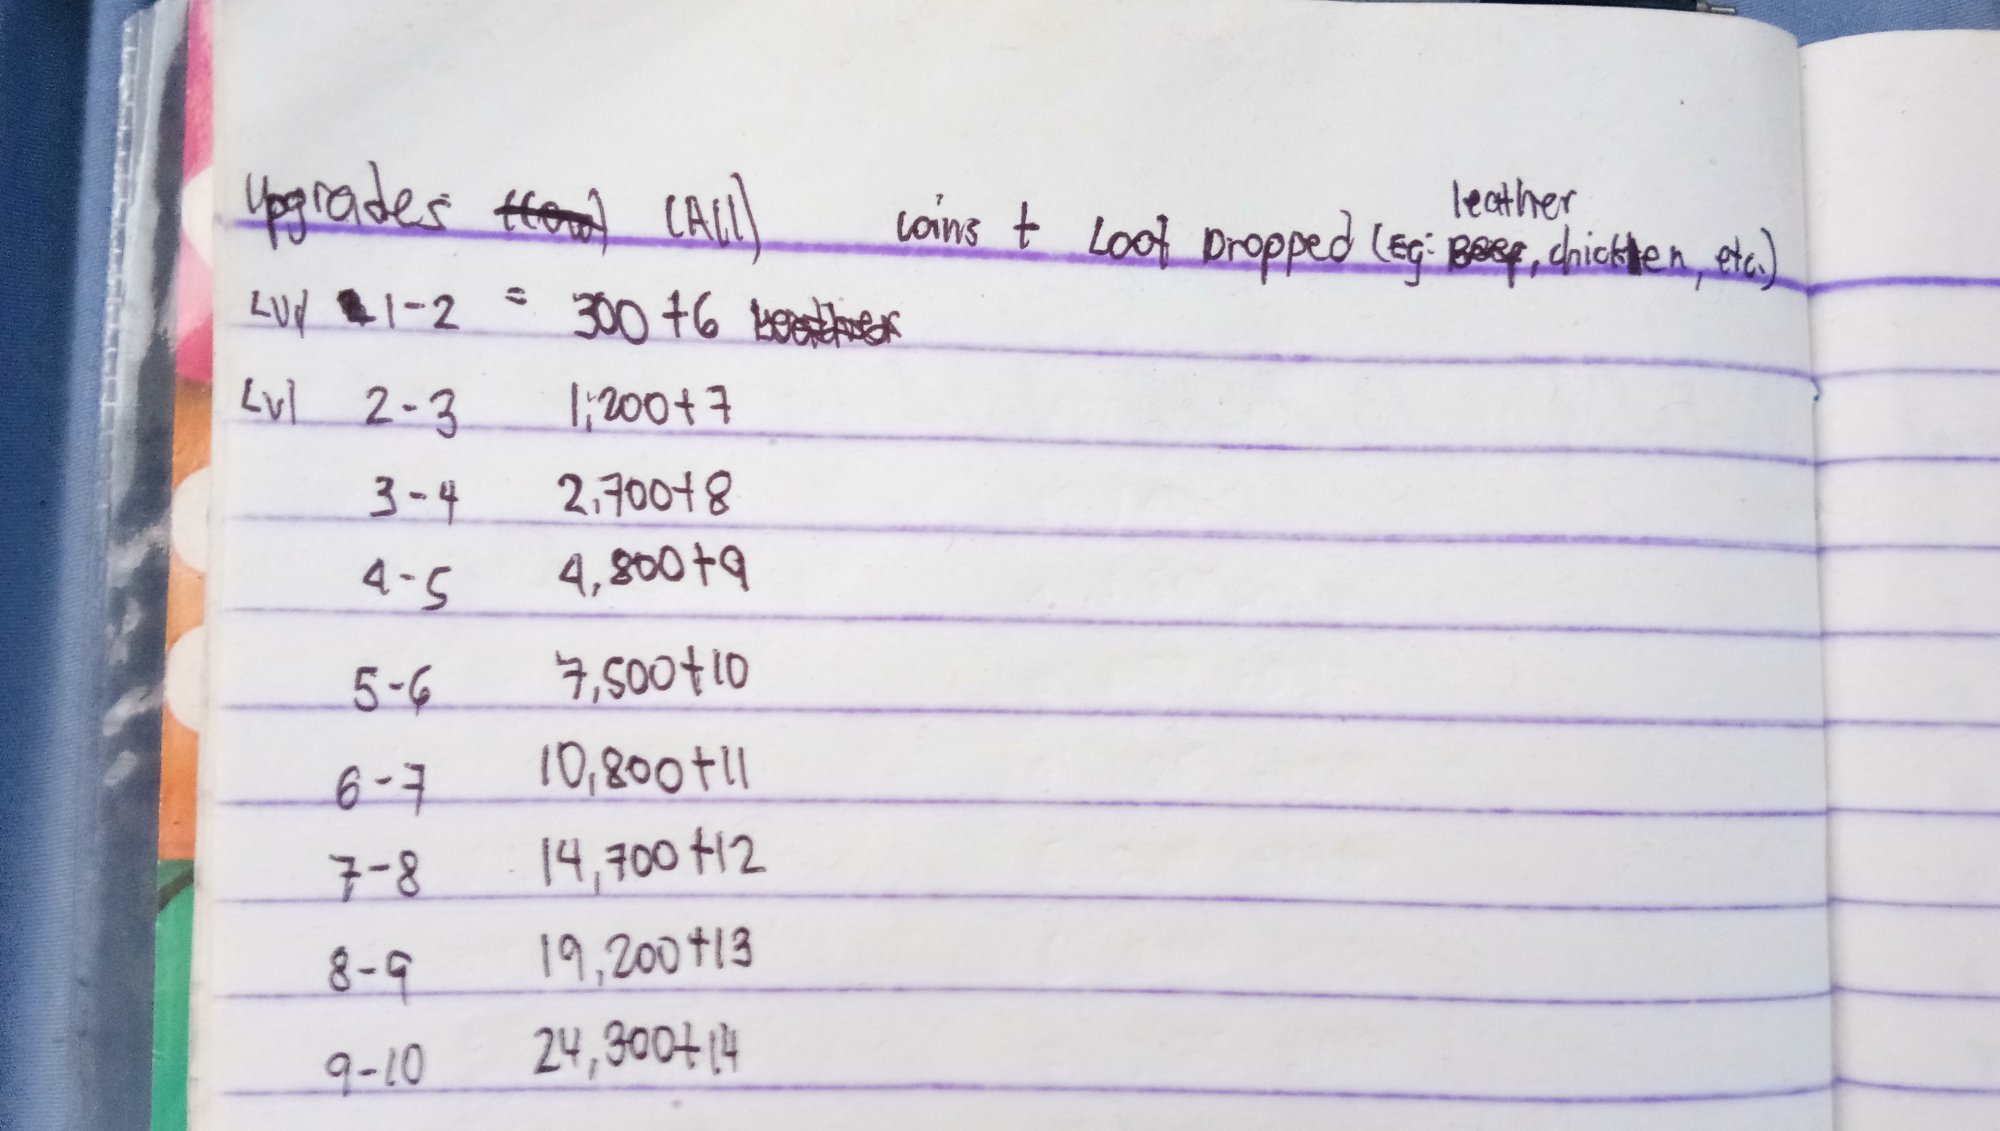 Upgrades (All) coins + Loot Dropped (Eg: leather, chicken, etc.)
Lvl 1-2 = 300+6
Lvl 2-3 1,200+7
3-4 2,700+8
4-5 4,800+9
5-6 7,500+10
6-7 10,800+11
7-8 14,700+12
8-9 19,200+13
9-10 24,300+14